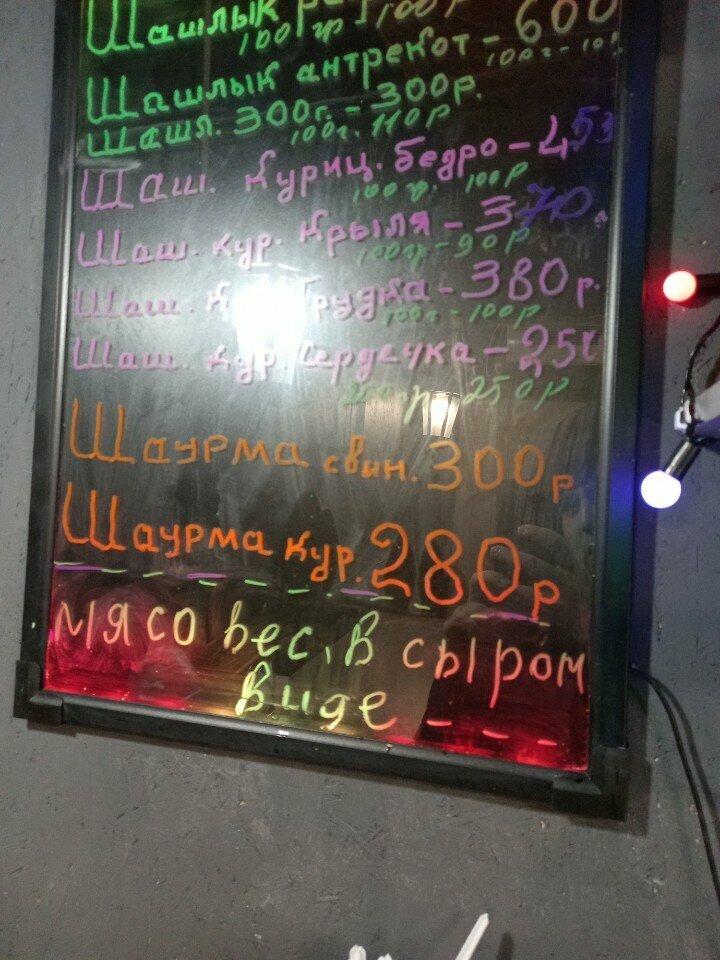 Шашлык
100 гр 100 р
Шашлык антрекот - 600
100 г -
Шашл. 300 г. - 300 р.
100 г. 110 р
Шаш. Куриц. бедро - 45
100 гр. 100 р
Шаш. кур. Крылья - 370
100 гр - 90 р
Шаш. Грудка - 380 р.
100 г - 100 р
Шаш. кур. Сердечка - 25
250 р
Шаурма свин. 300 р
Шаурма кур. 280 р
мясо вес, в сыром
виде - - -